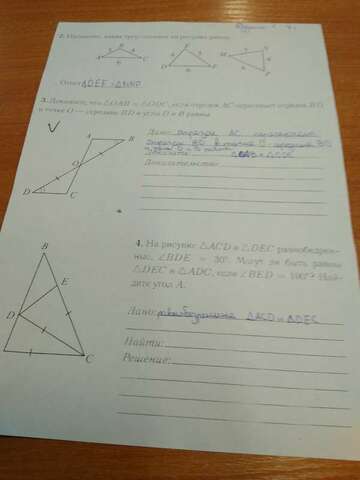 2. Назовите, какие треугольники на рисунке равны.
Ответ △DEF = △MNP
3. Докажите, что △OAB = △ODC, если отрезок AC пересекает отрезок BD
в точке O — середине BD и углы D и B равны.
Дано: Отрезок AC пересекает
отрезок BD в точке O - середине BD
и углы D и B равны
Доказать: △OAB = △ODC
Доказательство:
A
B
O
D
C
4. На рисунке △ACD и △DEC равнобедрен-
ные, ∠BDE = 30°. Могут ли быть равны
△DEC и △ADC, если ∠BED = 100°? Най-
дите угол A.
Дано: равнобедренные △ACD и △DEC
Найти:
Решение:
B
E
D
C